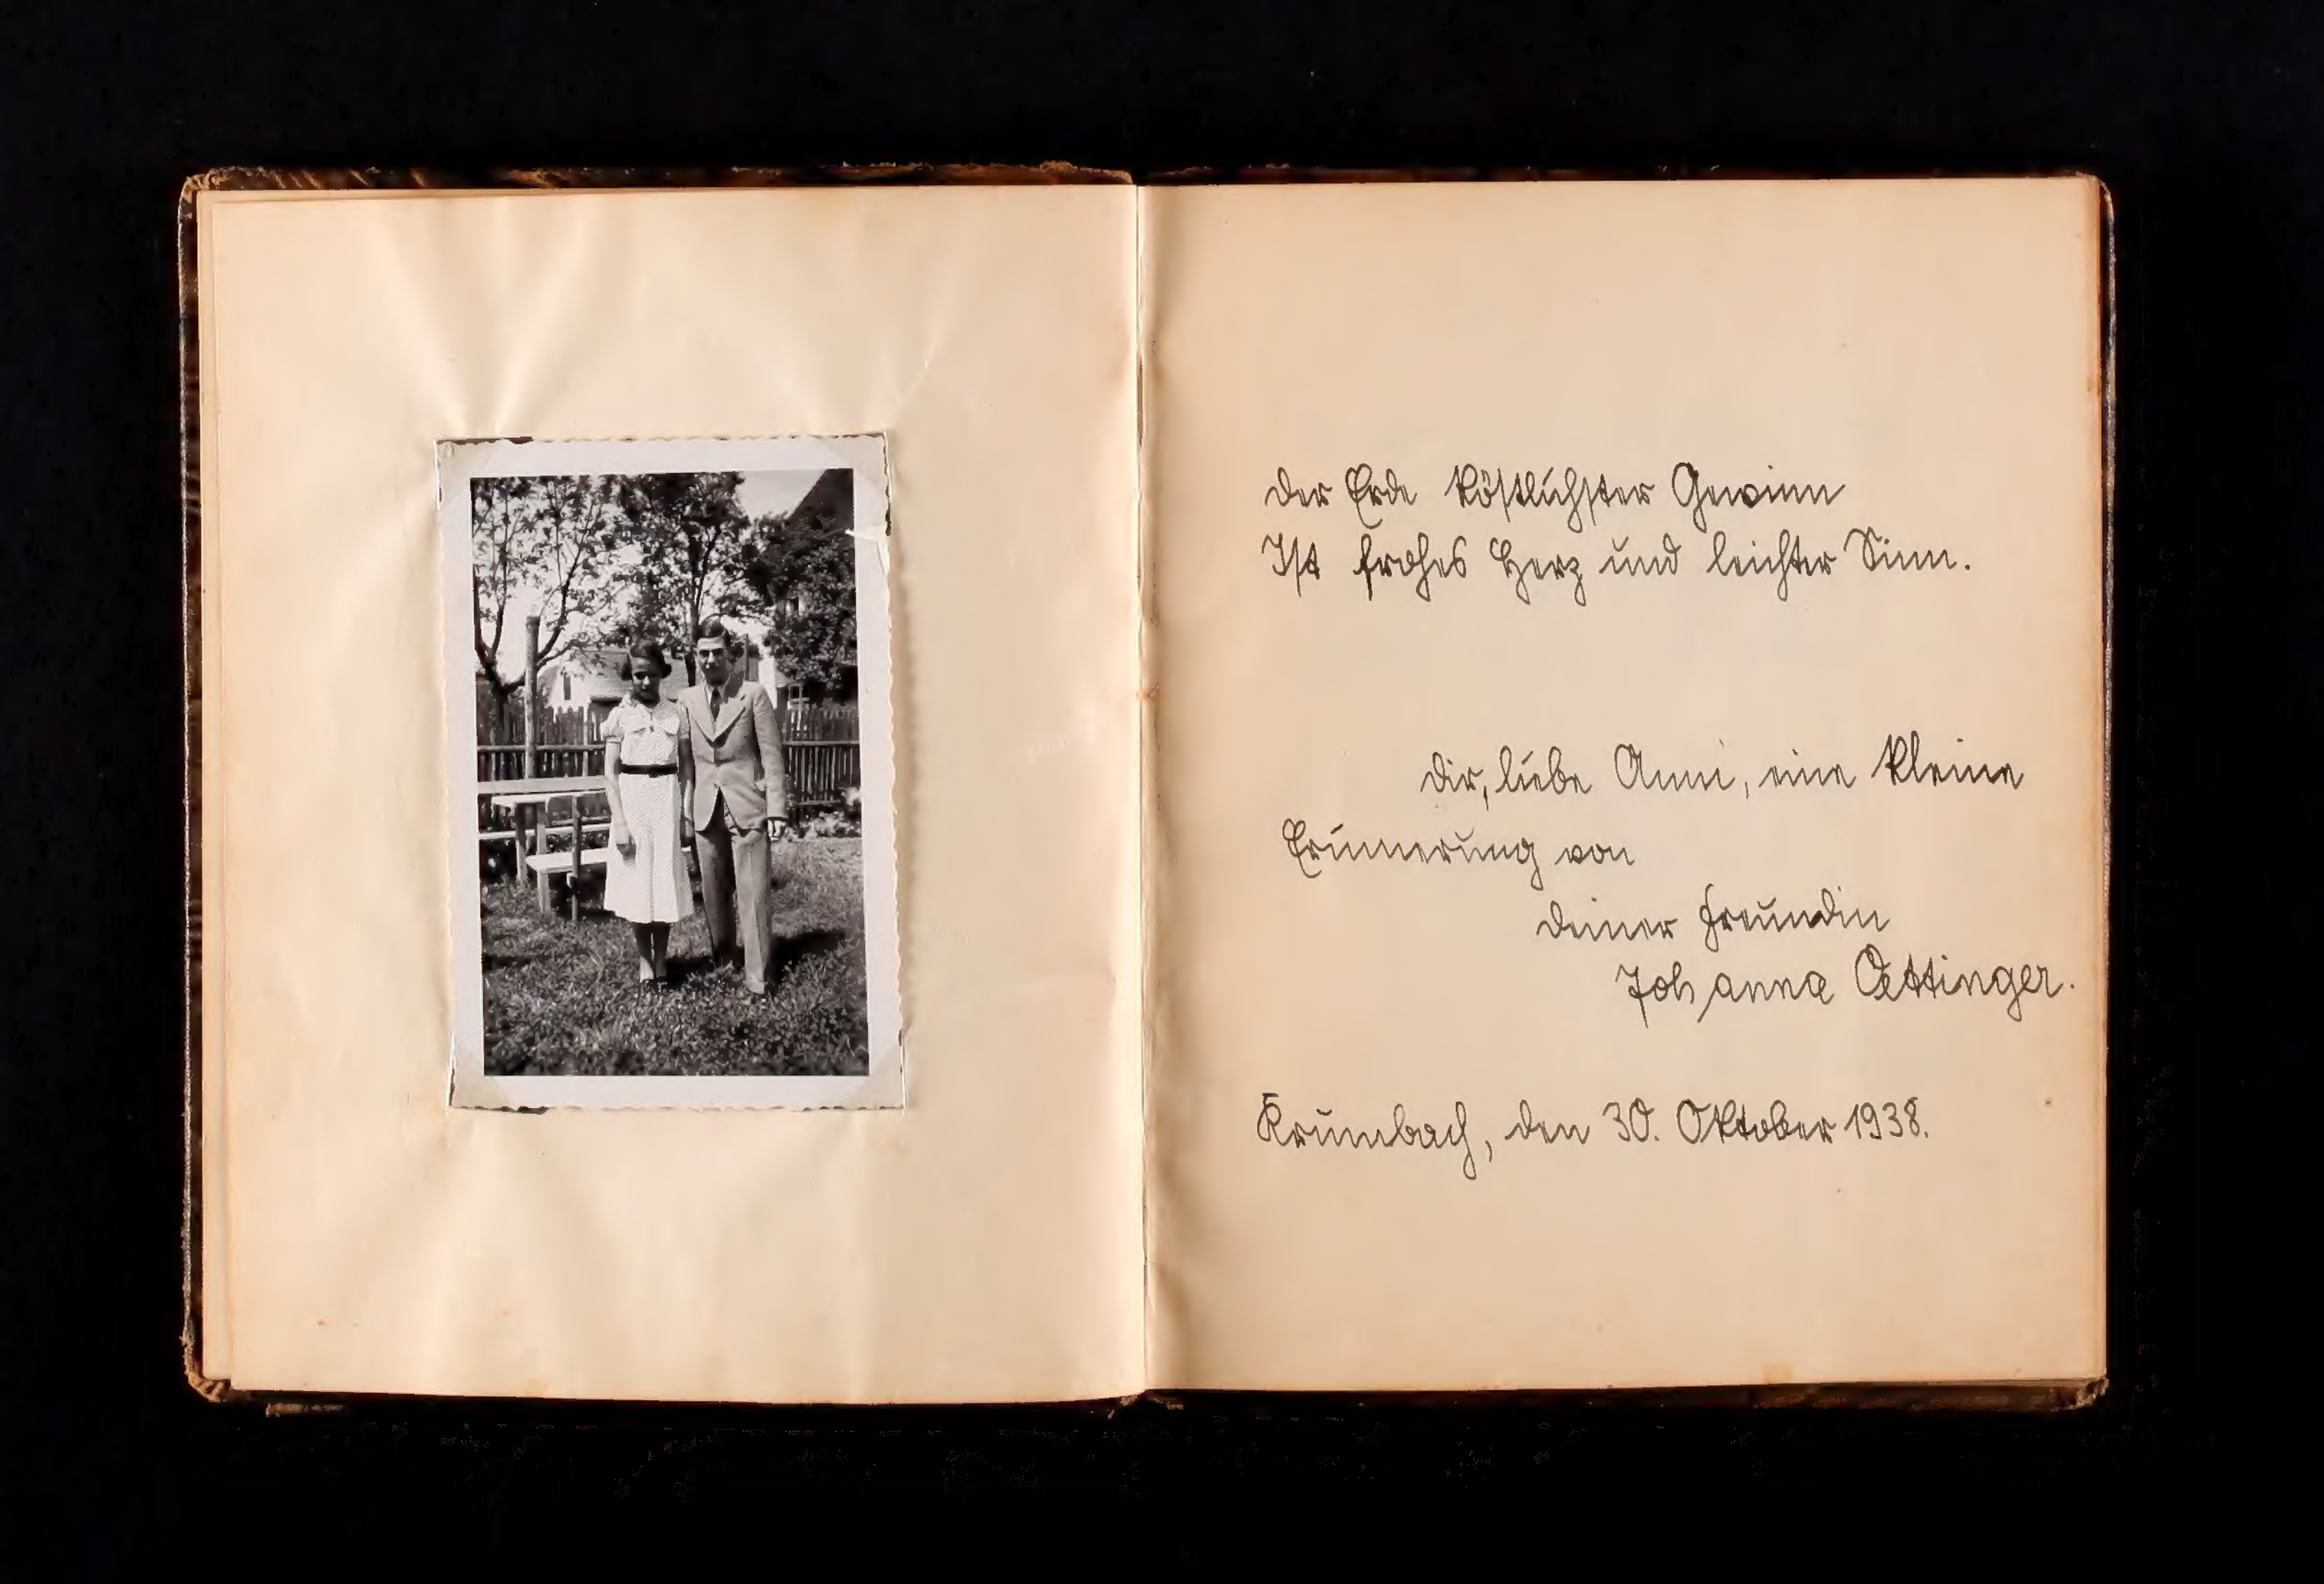 Der Erde köstlichster Gewinn
Ist frohes Herz und leichter Sinn.
Dir, liebe Anni, eine kleine
Erinnerung von
Deiner Freundin
Johanna Oettinger.
Krumbach, den 30. Oktober 1938.